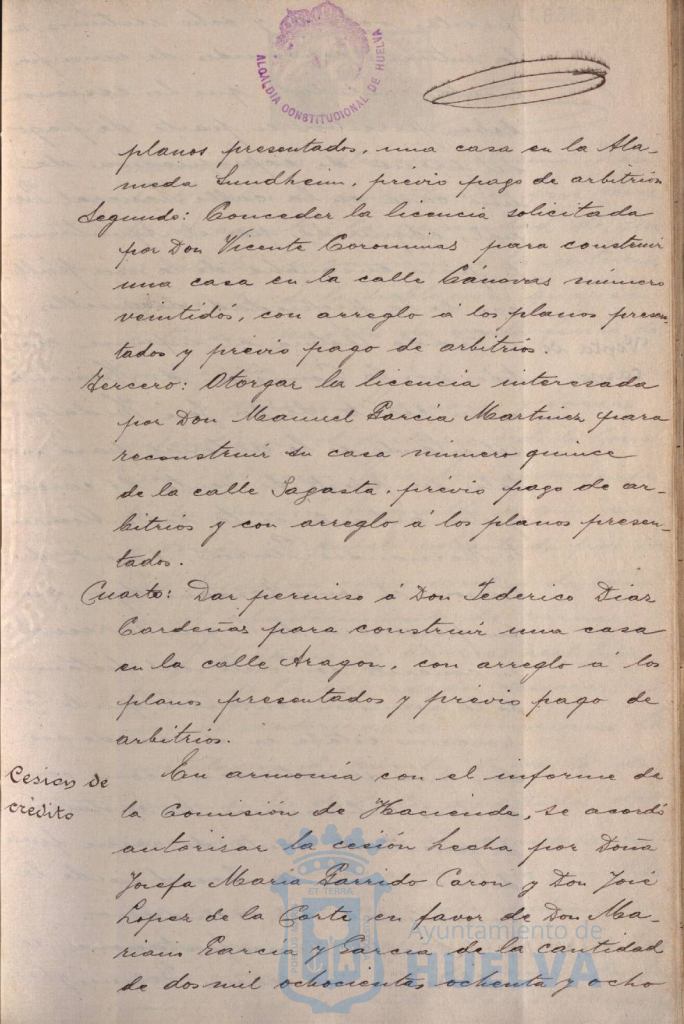 ALCALDIA CONSTITUCIONAL DE HUELVA
planos presentados, una casa en la Ala-
meda Sundheim, prévio pago de arbitrios
Segundo: Conceder la licencia solicitada
por Don Vicente Corominas para construir
una casa en la calle Cánovas número
veintidós, con arreglo á los planos presen-
tados y prévio pago de arbitrios.
Tercero: Otorgar la licencia interesada
por Don Manuel Garcia Martinez para
reconstruir su casa número quince
de la calle Sagasta, prévio pago de ar-
bitrios y con arreglo á los planos presen-
tados.
Cuarto: Dar permiso á Don Federico Diaz
Cardeñas para construir una casa
en la calle Aragon, con arreglo á los
planos presentados y prévio pago de
arbitrios.
Cesion de
crédito
En armonía con el informe de
la Comisión de Hacienda, se acordó
autorizar la cesión hecha por Doña
Josefa Maria Garrido Caron y Don José
Lopez de la Corte en favor de Don Ma-
riano Garcia y Garcia de la cantidad
de dos mil ochocientas ochenta y ocho
Ayuntamiento de
HUELVA